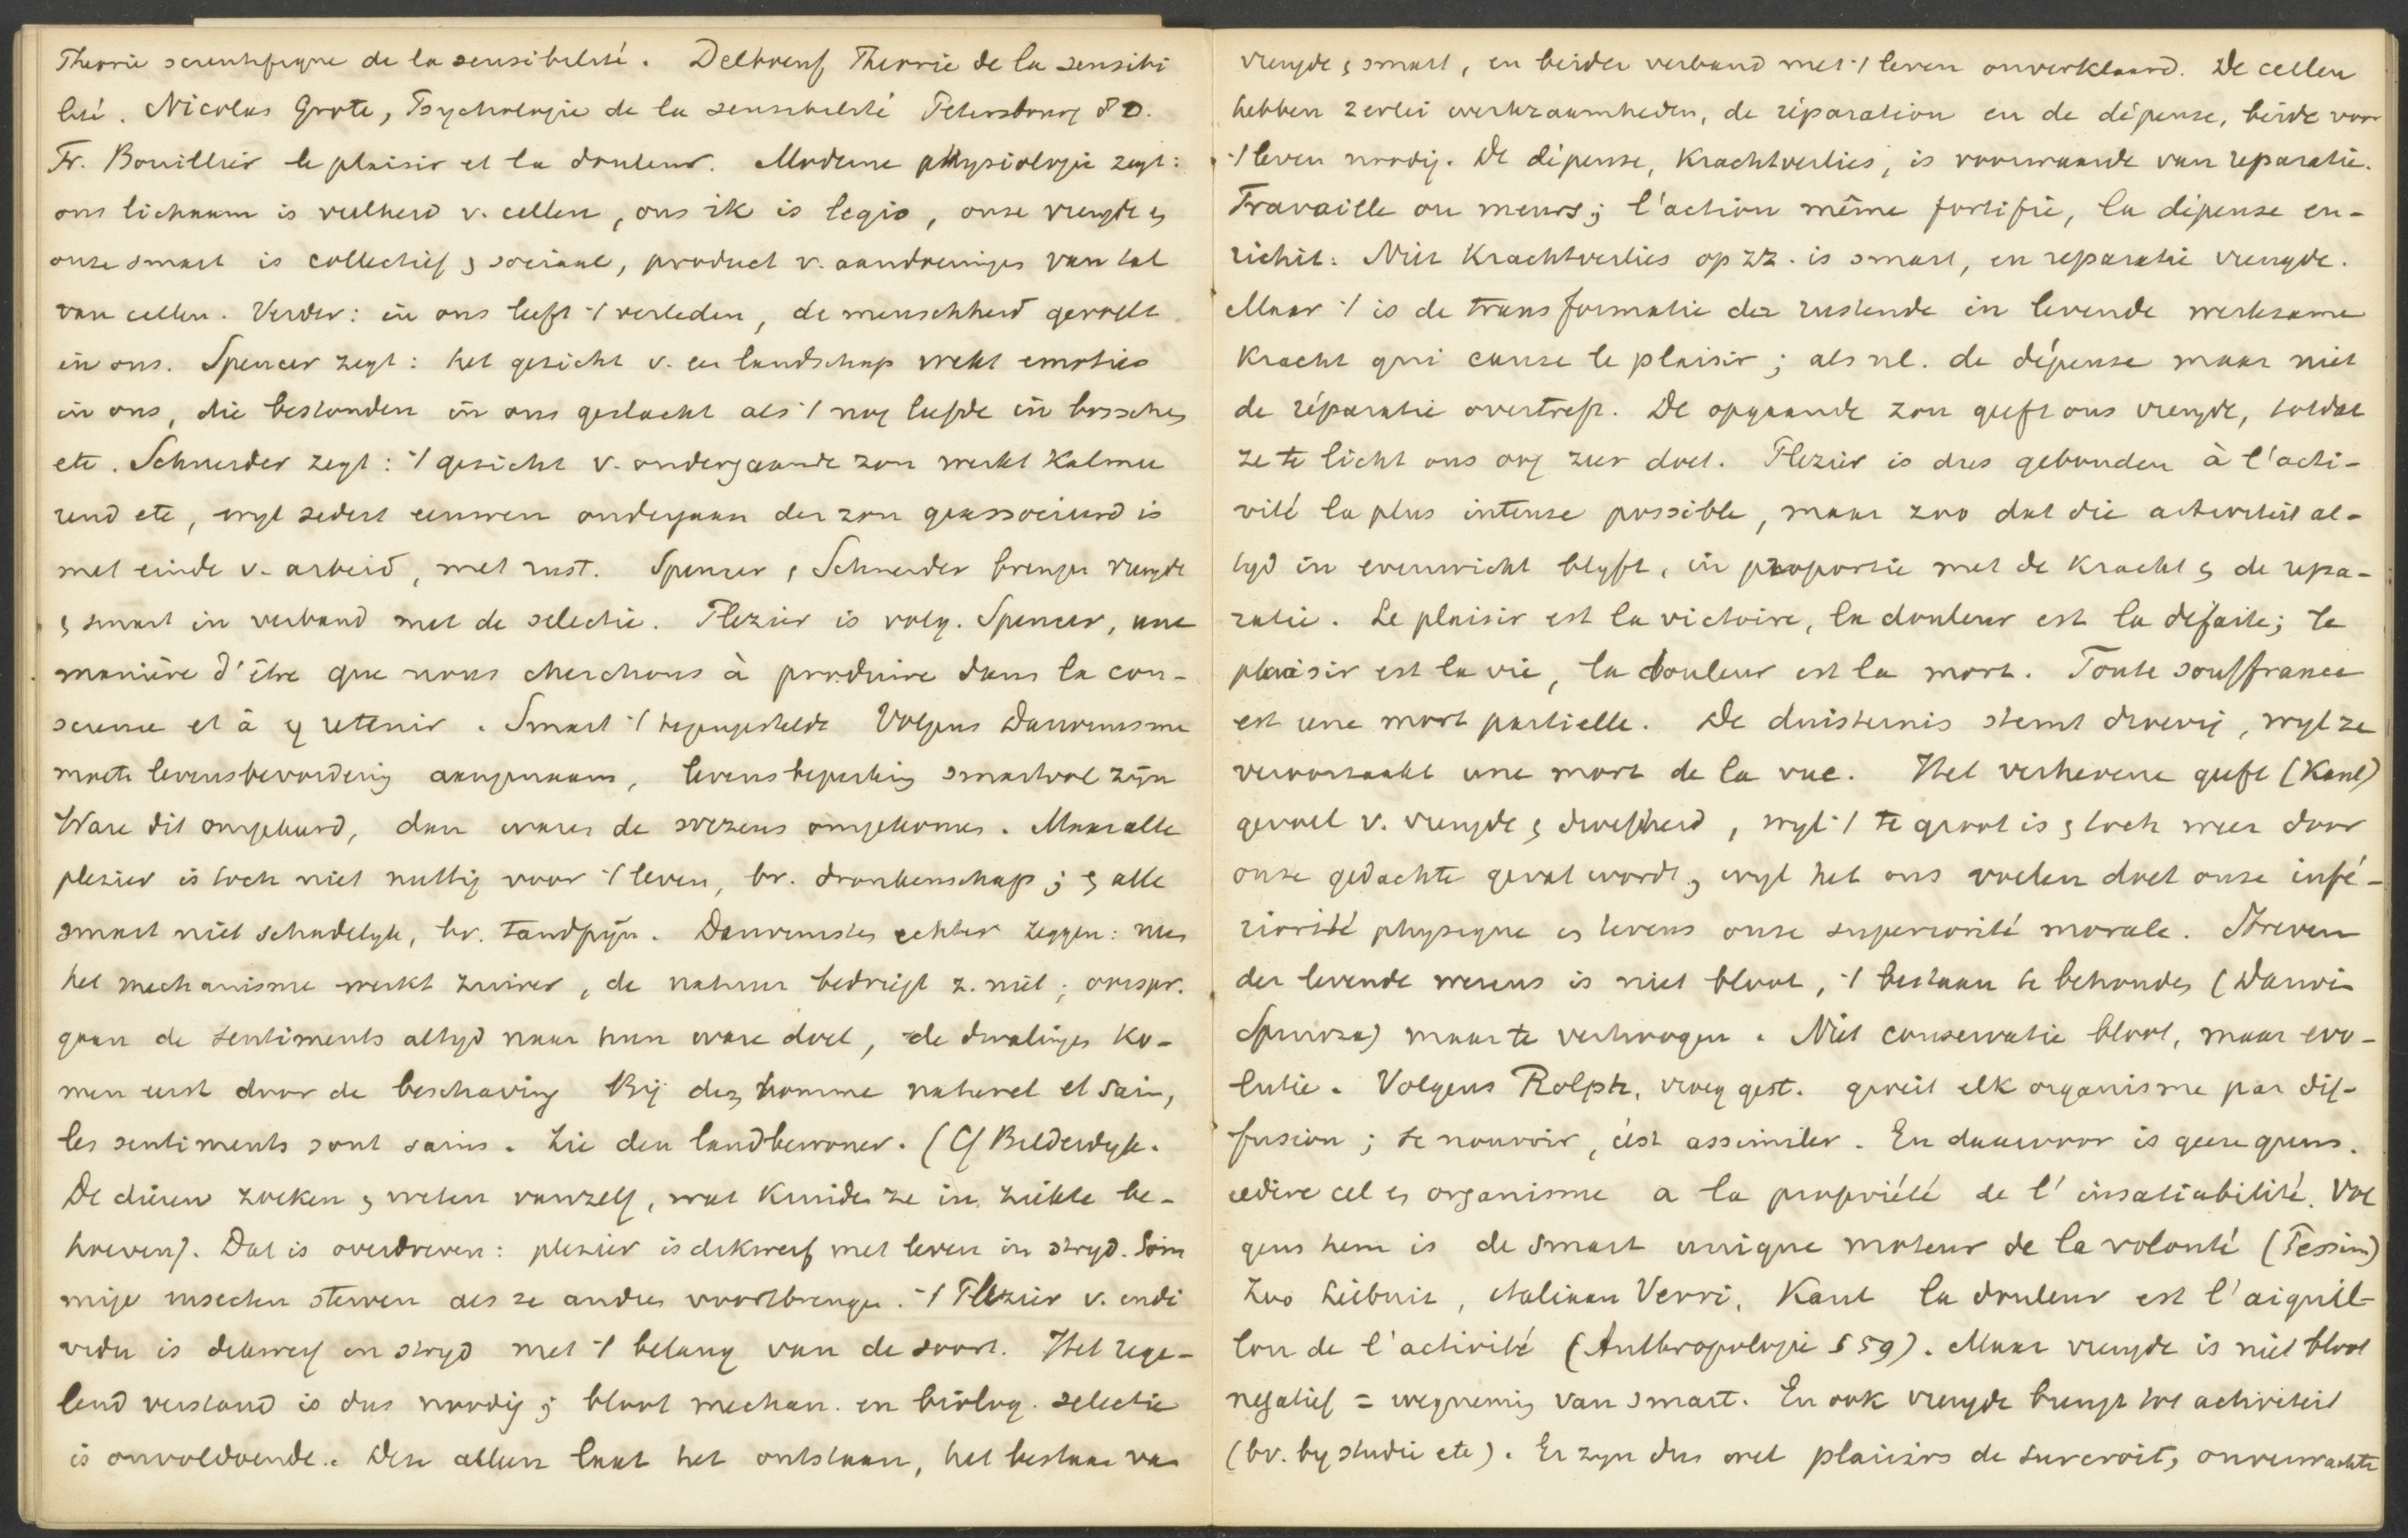 Theorie scientifique de la sensibilité. Delboeuf Theorie de la sensibi
lité. Nicolas Grote, Psychologie de la sensibilité Petersbourg 80.
Fr. Bouillier le plaisir et la douleur. Moderne physiologie zegt:
ons lichaam is veelheid v. cellen, ons ik is legio, onze vreugde en
onze smart is collectief en sociaal, product v. aandoeningen van tal
van cellen. Verder: in ons leeft 't verleden, de menschheid gevoelt
in ons. Spencer zegt: het gezicht v. een landschap wekt emoties
in ons, die bestonden in ons geslacht als 't nog leefde in bosschen
etc. Schneider zegt: 't gezicht v. ondergaande zon werkt kalmee
rend etc, wyl sedert eeuwen ondergaan der zon geassocieerd is
met einde v. arbeid, met rust. Spencer en Schneider brengen vreugde
en smart in verband met de selectie. Plezier is volg. Spencer, une
manière d'être que nous cherchons à produire dans la con-
science et à y retenir. Smart 't tegengestelde Volgens Darwinisme
moete levensbevordering aangenaam, levensbeperking smartvol zijn
Ware dit omgekeerd, dan waren de wezens omgekomen. Maar alle
plezier is toch niet nuttig voor 't leven, bv. dronkenschap; en alle
smart niet schadelyk, bv. tandpijn. Darwinisten echter zeggen:
het mechanisme werkt zuiver, de natuur bedriegt z. niet; oorspr.
gaan de sentiments altyd naar hun ware doel, de dwalingen ko-
men eerst door de beschaving Bij den homme naturel et sain,
les sentiments sont sains. Zie den landbewoner. (Cf Bilderdyk.
De dieren zoeken en weten vanzelf, wat kruiden ze in ziekte be-
hoeven). Dat is overdreven: plezier is dikwerf met leven in stryd. Som
mige insecten sterven als ze andren voortbrengen. 't Plezier v. indi
vidu is dikwerf in stryd met 't belang van de soort. Het rege-
lend verstand is dus noodig; bloot mechan. en biolog. selectie
is onvoldoende. Deze alleen laat het ontstaan, het bestaan van
vreugde en smart, en beider verband met 't leven onverklaard. De cellen
hebben 2erlei werkzaamheden, de réparation en de dépense, beide voor
't leven noodig. De dépense, krachtverlies, is voorwaarde van reparatie.
Travaille ou meurs; l'action même fortifie, la dépense en-
richit. Niet krachtverlies op zz. is smart, en reparatie vreugde.
Maar 't is de transformatie der rustende in levende werkzame
kracht qui cause le plaisir; als nl. de dépense maar niet
de réparatie overtreft. De opgaande zon geeft ons vreugde, totdat
ze te licht ons oog zeer doet. Plezier is dus gebonden à l'acti-
vité la plus intense possible, maar zoo dat die activiteit al-
tyd in evenwicht blyft, in proportie met de kracht en de repa-
ratie. Le plaisir est la victoire, la douleur est la défaite; le
plaisir est la vie, la douleur est la mort. Toute souffrance
est une mort partielle. De duisternis stemt droevig, wyl ze
veroorzaakt une mort de la vue. Het verhevene geeft (Kant)
gevoel v. vreugde en droefheid, wyl 't te groot is en toch weer door
onze gedachte gevat wordt, wyl het ons voelen doet onze infé-
riorité physique en tevens onze superiorité morale. Streven
der levende wezens is niet bloot, 't bestaan te behouden (Darwin
Spinoza) maar te verhoogen. Niet conservatie bloot, maar evo-
lutie. Volgens Rolph, vroeg gest. groeit elk organisme par dif-
fusion; se nourrir, c'est assimiler. En daarvoor is geene grens.
iedere cel en organisme a la propriété de l'insatiabilité. Vol
gens hem is de smart unique moteur de la volonté (Pessim)
Zoo Leibniz, italiaan Verri, Kant la douleur est l'aiguil-
lon de l'activité (Anthropologie § 59). Maar vreugde is niet bloot
negatief = wegneming van smart. En ook vreugde brengt tot activiteit
(bv. by studie etc). Er zyn dus wel plaisirs de surcroit, onverwachte